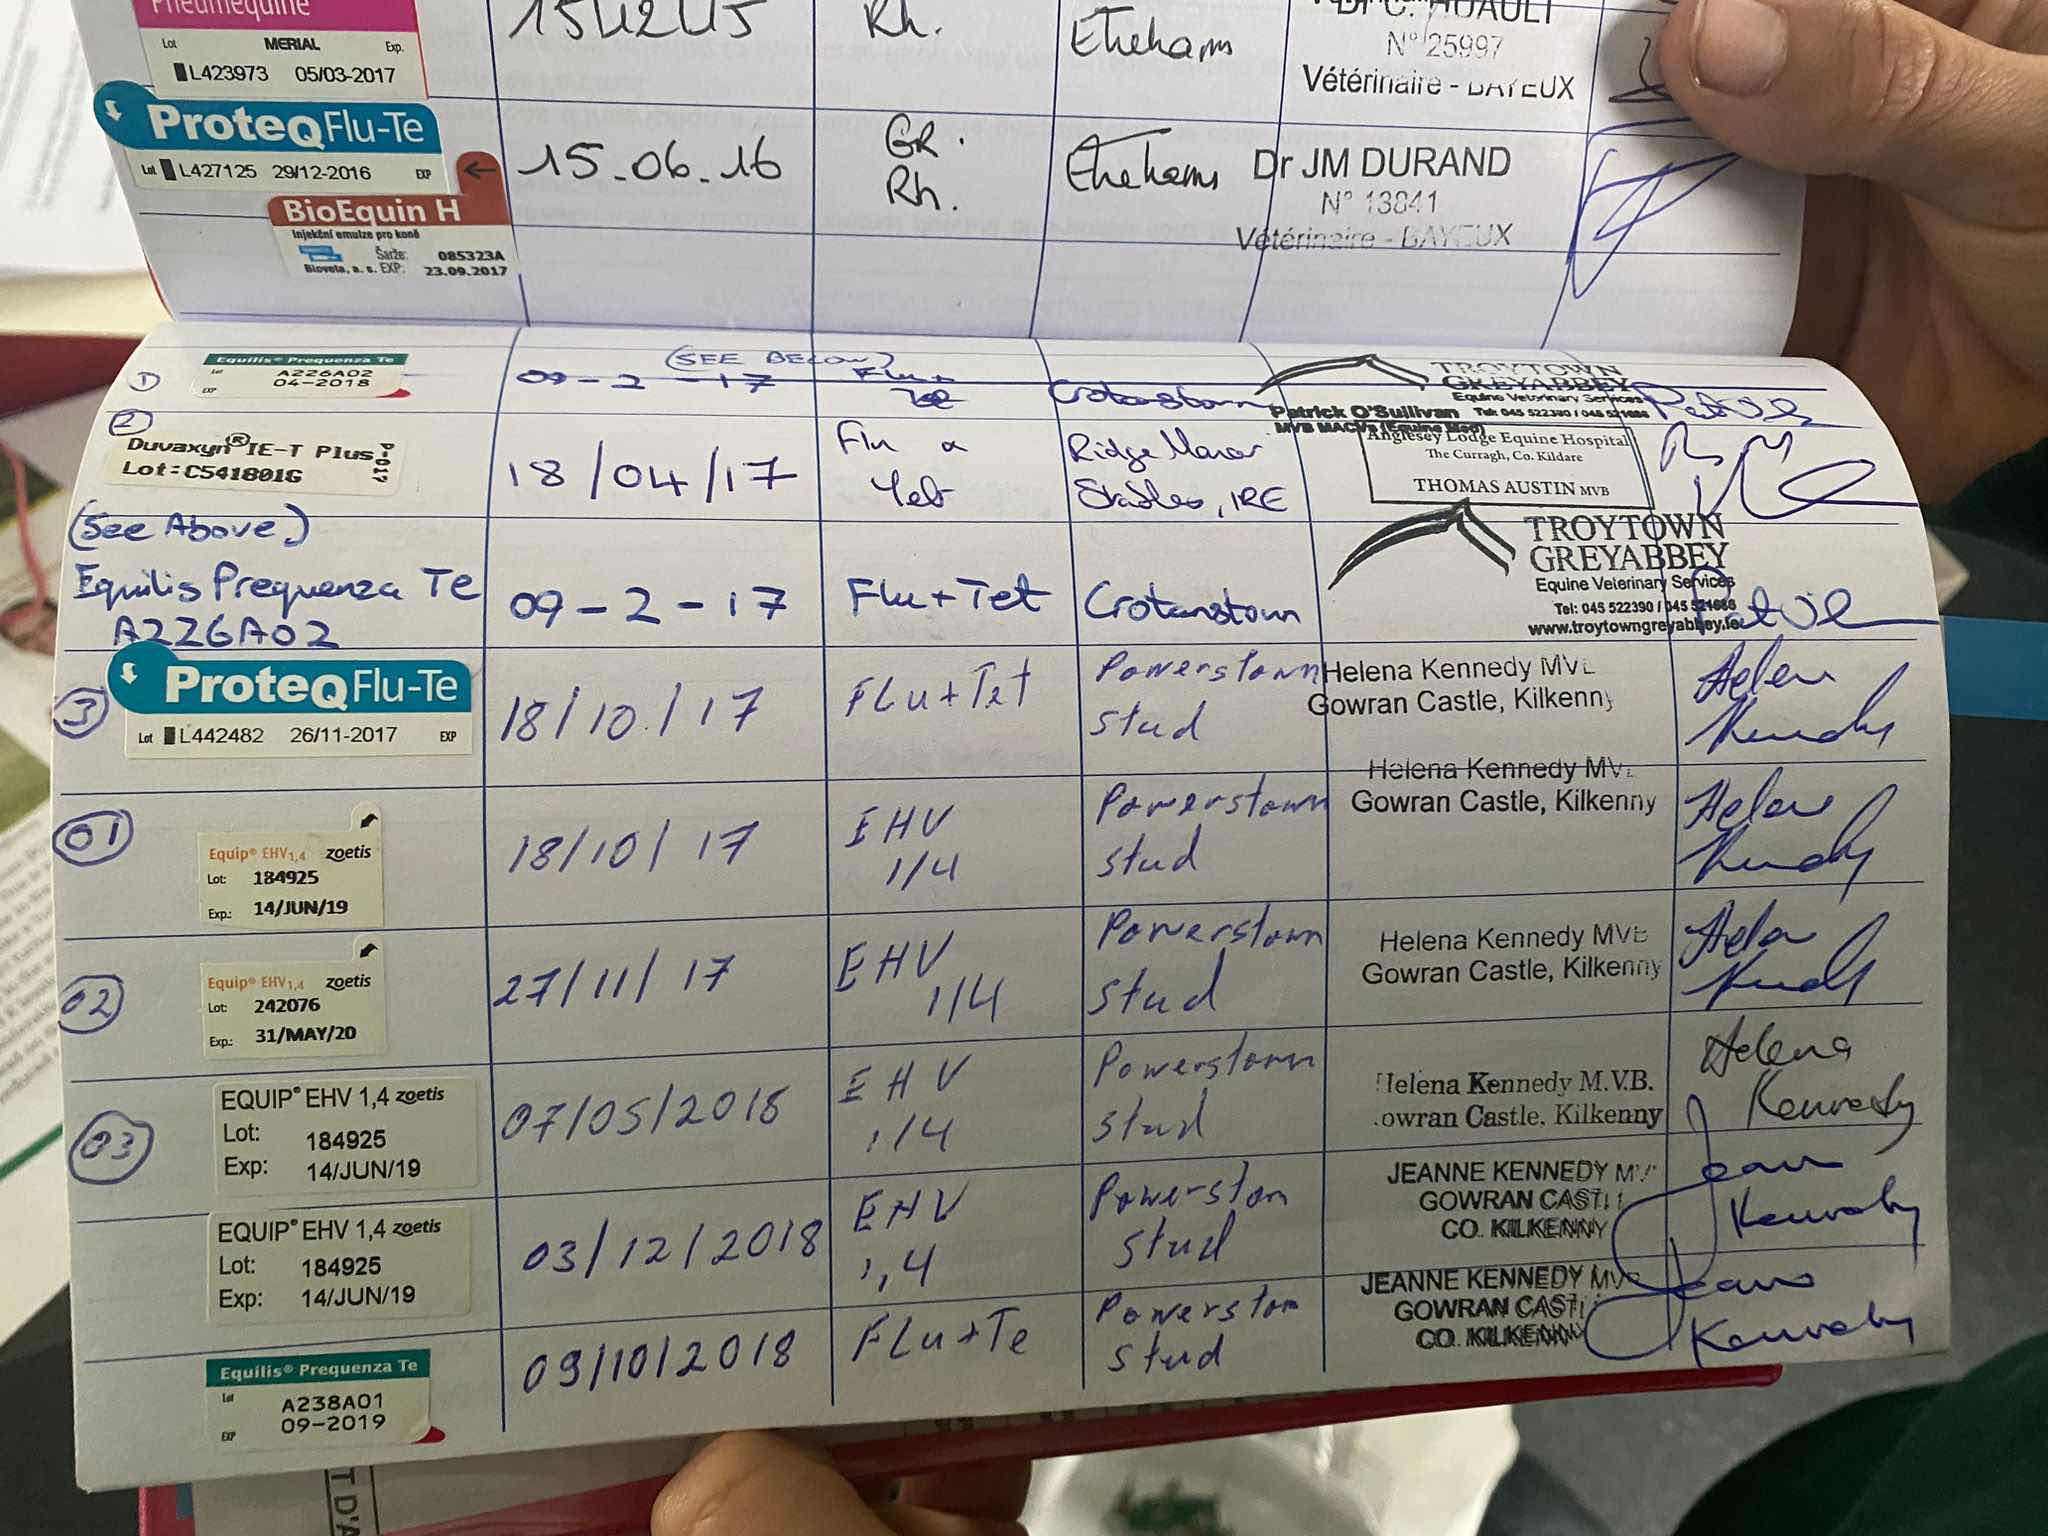 Pneumequine
Lot MERIAL Exp.
L423973 05/03-2017
15/12/15
Rh.
Etreham
Dr C. HUAULT
N° 25997
Vétérinaire - BAYEUX
ProteqFlu-Te
Lot L427125 29/12-2016 EXP
15.06.16
GR.
Rh.
Etreham
Dr JM DURAND
N° 13841
Vétérinaire - BAYEUX
BioEquin H
Injekční emulze pro koně
Šarže: 085323A
Bioveta, a. s. EXP: 23.09.2017
(SEE BELOW)
1
Equilis® Prequenza Te
Lot A226A02
EXP 04-2018
09-2-17
Flu+
Crotanstown
TROYTOWN
GREYABBEY
Equine Veterinary Services
Patrick O'Sullivan Tel: 045 522390 / 045 521686
MVB MACVs (Equine Med)
2
Duvaxyn® IE-T Plus
Lot: C541801G
18/04/17
Flu &
Tet
Ridge Manor
Stables, IRE
Anglesey Lodge Equine Hospital
The Curragh, Co. Kildare
THOMAS AUSTIN MVB
(See Above)
Equilis Prequenza Te
A226A02
09-2-17
Flu+Tet
Crotanstown
TROYTOWN
GREYABBEY
Equine Veterinary Services
Tel: 045 522390 / 045 521686
www.troytowngreyabbey.ie
3
ProteqFlu-Te
Lot L442482 26/11-2017 EXP
18/10/17
FLu+Tet
Powerstown
Stud
Helena Kennedy MVB
Gowran Castle, Kilkenny
Helena
Kennedy
01
Equip® EHV1,4 zoetis
Lot: 184925
Exp.: 14/JUN/19
18/10/17
EHV
1/4
Powerstown
Stud
Helena Kennedy MVB
Gowran Castle, Kilkenny
Helena
Kennedy
02
Equip® EHV1,4 zoetis
Lot: 242076
Exp.: 31/MAY/20
27/11/17
EHV
1/4
Powerstown
Stud
Helena Kennedy MVB
Gowran Castle, Kilkenny
Helena
Kennedy
03
EQUIP® EHV 1,4 zoetis
Lot: 184925
Exp: 14/JUN/19
07/05/2018
EHV
1/4
Powerstown
Stud
Helena Kennedy M.V.B.
Gowran Castle, Kilkenny
Helena
Kennedy
EQUIP® EHV 1,4 zoetis
Lot: 184925
Exp: 14/JUN/19
03/12/2018
EHV
1,4
Powerston
Stud
JEANNE KENNEDY MVB
GOWRAN CASTLE
CO. KILKENNY
Jeanne
Kennedy
Equilis® Prequenza Te
Lot A238A01
EXP 09-2019
09/10/2018
FLu+Te
Powerston
Stud
JEANNE KENNEDY MVB
GOWRAN CASTLE
CO. KILKENNY
Jeanne
Kennedy